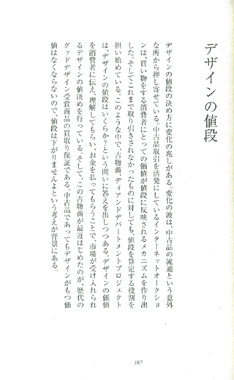 デザインの値段
デザインの値段の決め方に変化の兆しがある。変化の波は、中古品の流通という意外
な所から押し寄せている。中古品取引を活発にしているインターネットオークショ
ンは、買い物をする消費者にとっての価値が値段に反映されるメカニズムを作り出
した。そしてこれまで取り引きされなかったものに対しても、値段を算定する役割を
担い始めている。このような中で、古物商、ディアンドデパートメントプロジェクト
は、デザインの値段はいくらか?という問いに答えを出しつつある。デザインの価値
を消費者に伝え、理解してもらい、お金を払ってもらうことで、市場が受け入れられ
るデザインの値決めを行っている。この古物商が最近はじめたのが、歴代の
グッドデザイン受賞商品の買取り保証である。中古品であってもデザインがもつ価
値はなくならないので、値段は下がりませんよという考えが背景にある。
187